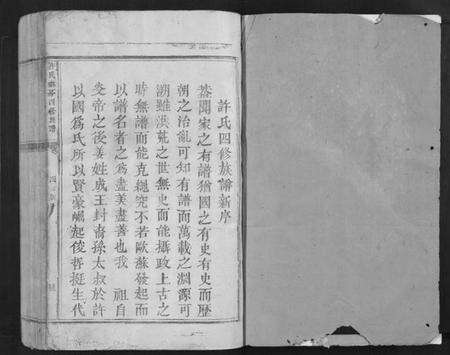 許氏四修族譜新序
蓋聞家之有譜猶國之有史有史而歷
朝之治亂可知有譜而萬載之淵源可
溯雖洪荒之世無史而能攝政上古之
時無譜而能克繩究不若歐蘇發起而
以譜名者之為盡美盡善也我 祖自
炎帝之後姜姓成王封裔孫太叔於許
以國為氏所以賢豪崛起俊哲挺生代